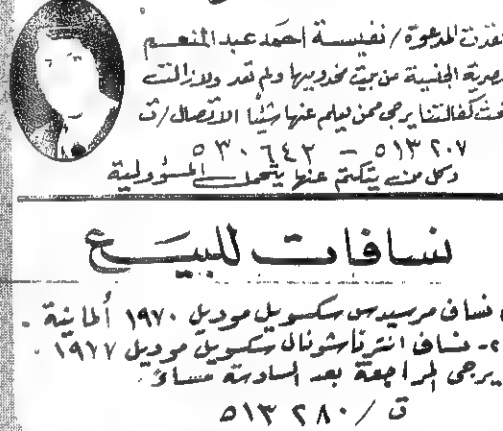 فقدت المدعوة / نفيسة احمد عبد المنعم
مصرية الجنسية من بيت مخدوميها ولم تعد ولازالت
كفالتنا يرجى ممن يعلم عنها شيئا الاتصال / ت
٥١٣٢٠٧ – ٥٣٠٦٤٢
وكل من يتكتم عنها يتحمل المسؤولية
نسافات للبيع
نساف مرسيدس سكسويل موديل ١٩٧٠ ألمانية .
٢- نساف انترناشونال سكسويل موديل ١٩٧٧ .
يرجى المراجعة بعد السادسة مساءً .
ت / ٥١٣٢٨٠